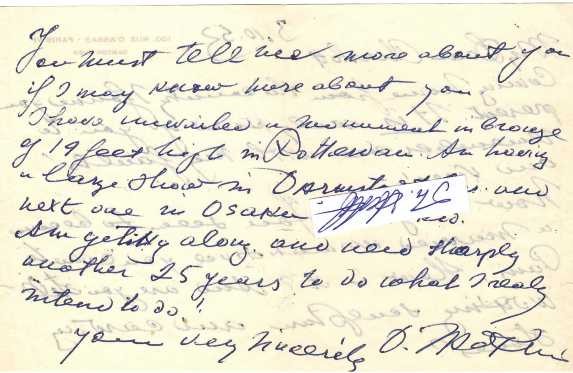 You must tell me more about you
if I may know more about you
I have unveiled a monument in bronze
of 19 feet high in Rotterdam. Am having
a large show in and
next one in Osaka
Am getting along and need sharply
another 25 years to do what I really
intend to do"
Yours very sincerely O. Zadkine